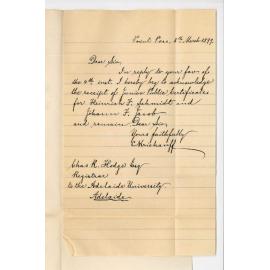 Point Pass, 8th March 1899.
Dear Sir,
In reply to your fav. of
the 4th inst. I hereby beg to acknowledge
the receipt of Junior Public Certificates
for Heinrich F. Schmidt and
Johann F. Jacob
and remain Dear Sir,
Yours faithfully
Chas R. Hodge Esq
Registrar
to the Adelaide University
Adelaide